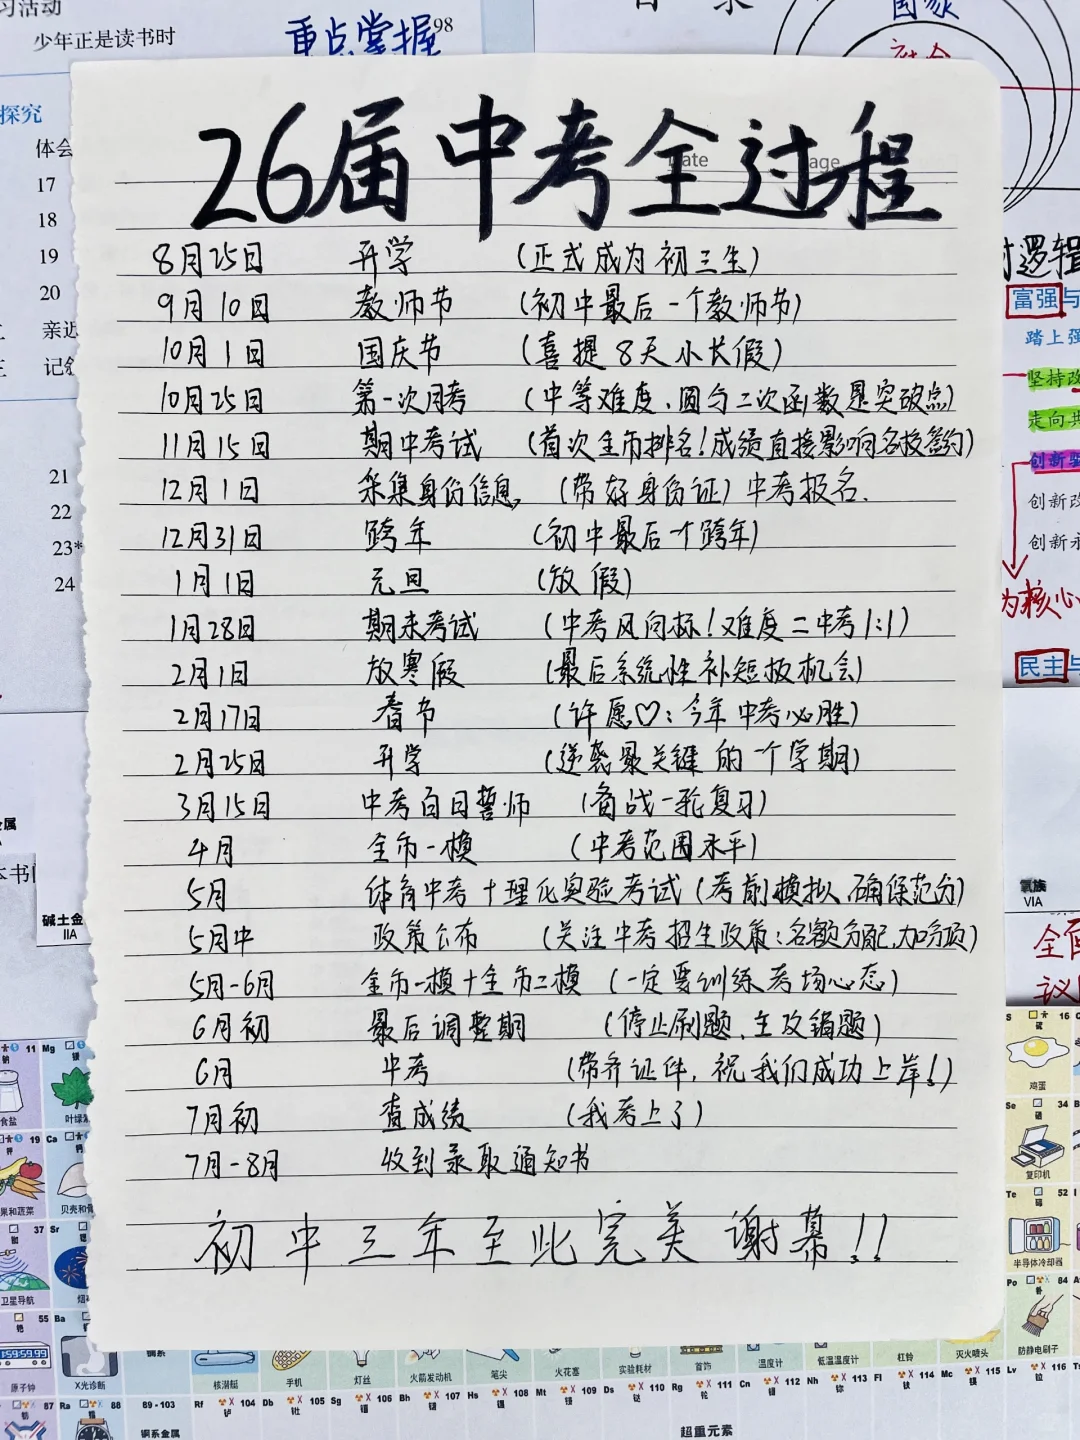 习活动
少年正是读书时
重点掌握
98
国家
社会
探究
体会
17
18
19
20
亲近
记叙
21
22
23*
24
26届中考全过程
8月25日 开学 (正式成为初三生)
9月10日 教师节 (初中最后一个教师节)
10月1日 国庆节 (喜提8天小长假)
10月25日 第一次月考 (中等难度、圆与二次函数是突破点)
11月15日 期中考试 (首次全市排名!成绩直接影响名校签约)
12月1日 采集身份信息, (带好身份证)中考报名.
12月31日 跨年 (初中最后一个跨年)
1月1日 元旦 (放假)
1月28日 期末考试 (中考风向标!难度二中考1:1)
2月1日 放寒假 (最后系统性补短板机会)
2月17日 春节 (许愿♡:今年中考必胜)
2月25日 开学 (逆袭最关键的一个学期)
3月15日 中考百日誓师 (备战一轮复习)
4月 全市一模 (中考范围水平)
5月 体育中考+理化实验考试(考前模拟,确保范分)
5月中 政策公布 (关注中考招生政策:名额分配,加分项)
5月-6月 全市一模+全市二模 (一定要训练考场心态)
6月初 最后调整期 (停止刷题、主攻错题)
6月 中考 (带齐证件,祝我们成功上岸!)
7月初 查成绩 (我考上了)
7月-8月 收到录取通知书
初中三年至此完美谢幕!!
逻辑
富强与
踏上强
坚持改
走向共
创新驱
创新改
创新永
为核心
民主与
氧族
VIA
全面
碱土金
IIA
11 Mg
食盐
19 Ca
37 Sr
卫星导航
55 Ba
原子钟
X光诊断
87 Ra
88
89-103
锕系金属
S 16
鸡蛋
Se 34
复印机
Te 52
半导体冷却器
Po 84
防静电刷子
核潜艇
手机
灯丝
火箭发动机
笔尖
火花塞
实验耗材
首饰
温度计
低温温度计
杠铃
灭火喷头
Rf 104 Db 105 Sg 106 Bh 107 Hs 108 Mt 109 Ds 110 Rg 111 Cn 112 Nh 113 Fl 114 Mc 115 Lv 116
超重元素